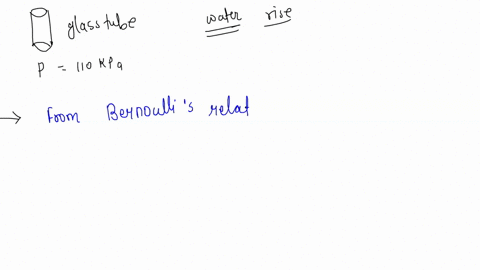 glass tube water rise
P = 110 KPa
→ From Bernoulli's relat